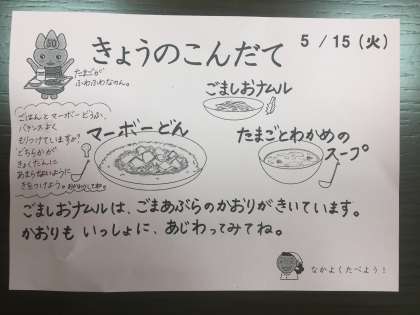 きょうのこんだて
5/15(火)
50
たまごが
ふわふわなのん。
ごましおナムル
ごはんとマーボーどうふ、
バランスよく
もりつけていますか?
どちらかが
きょくたんに
あまらないように
きをつけよう。おかわりしてね。
マーボーどん
たまごとわかめの
スープ
ごましおナムルは、ごまあぶらのかおりがきいています。
かおりも いっしょに、あじわってみてね。
なかよくたべよう!